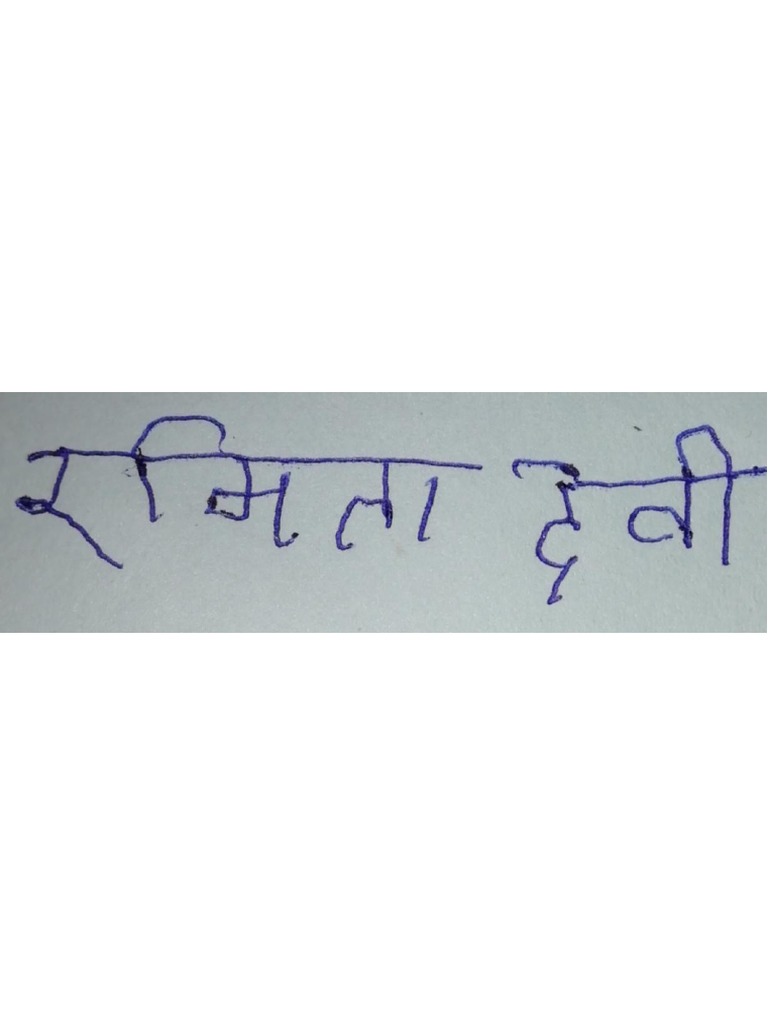 रमिता देवी